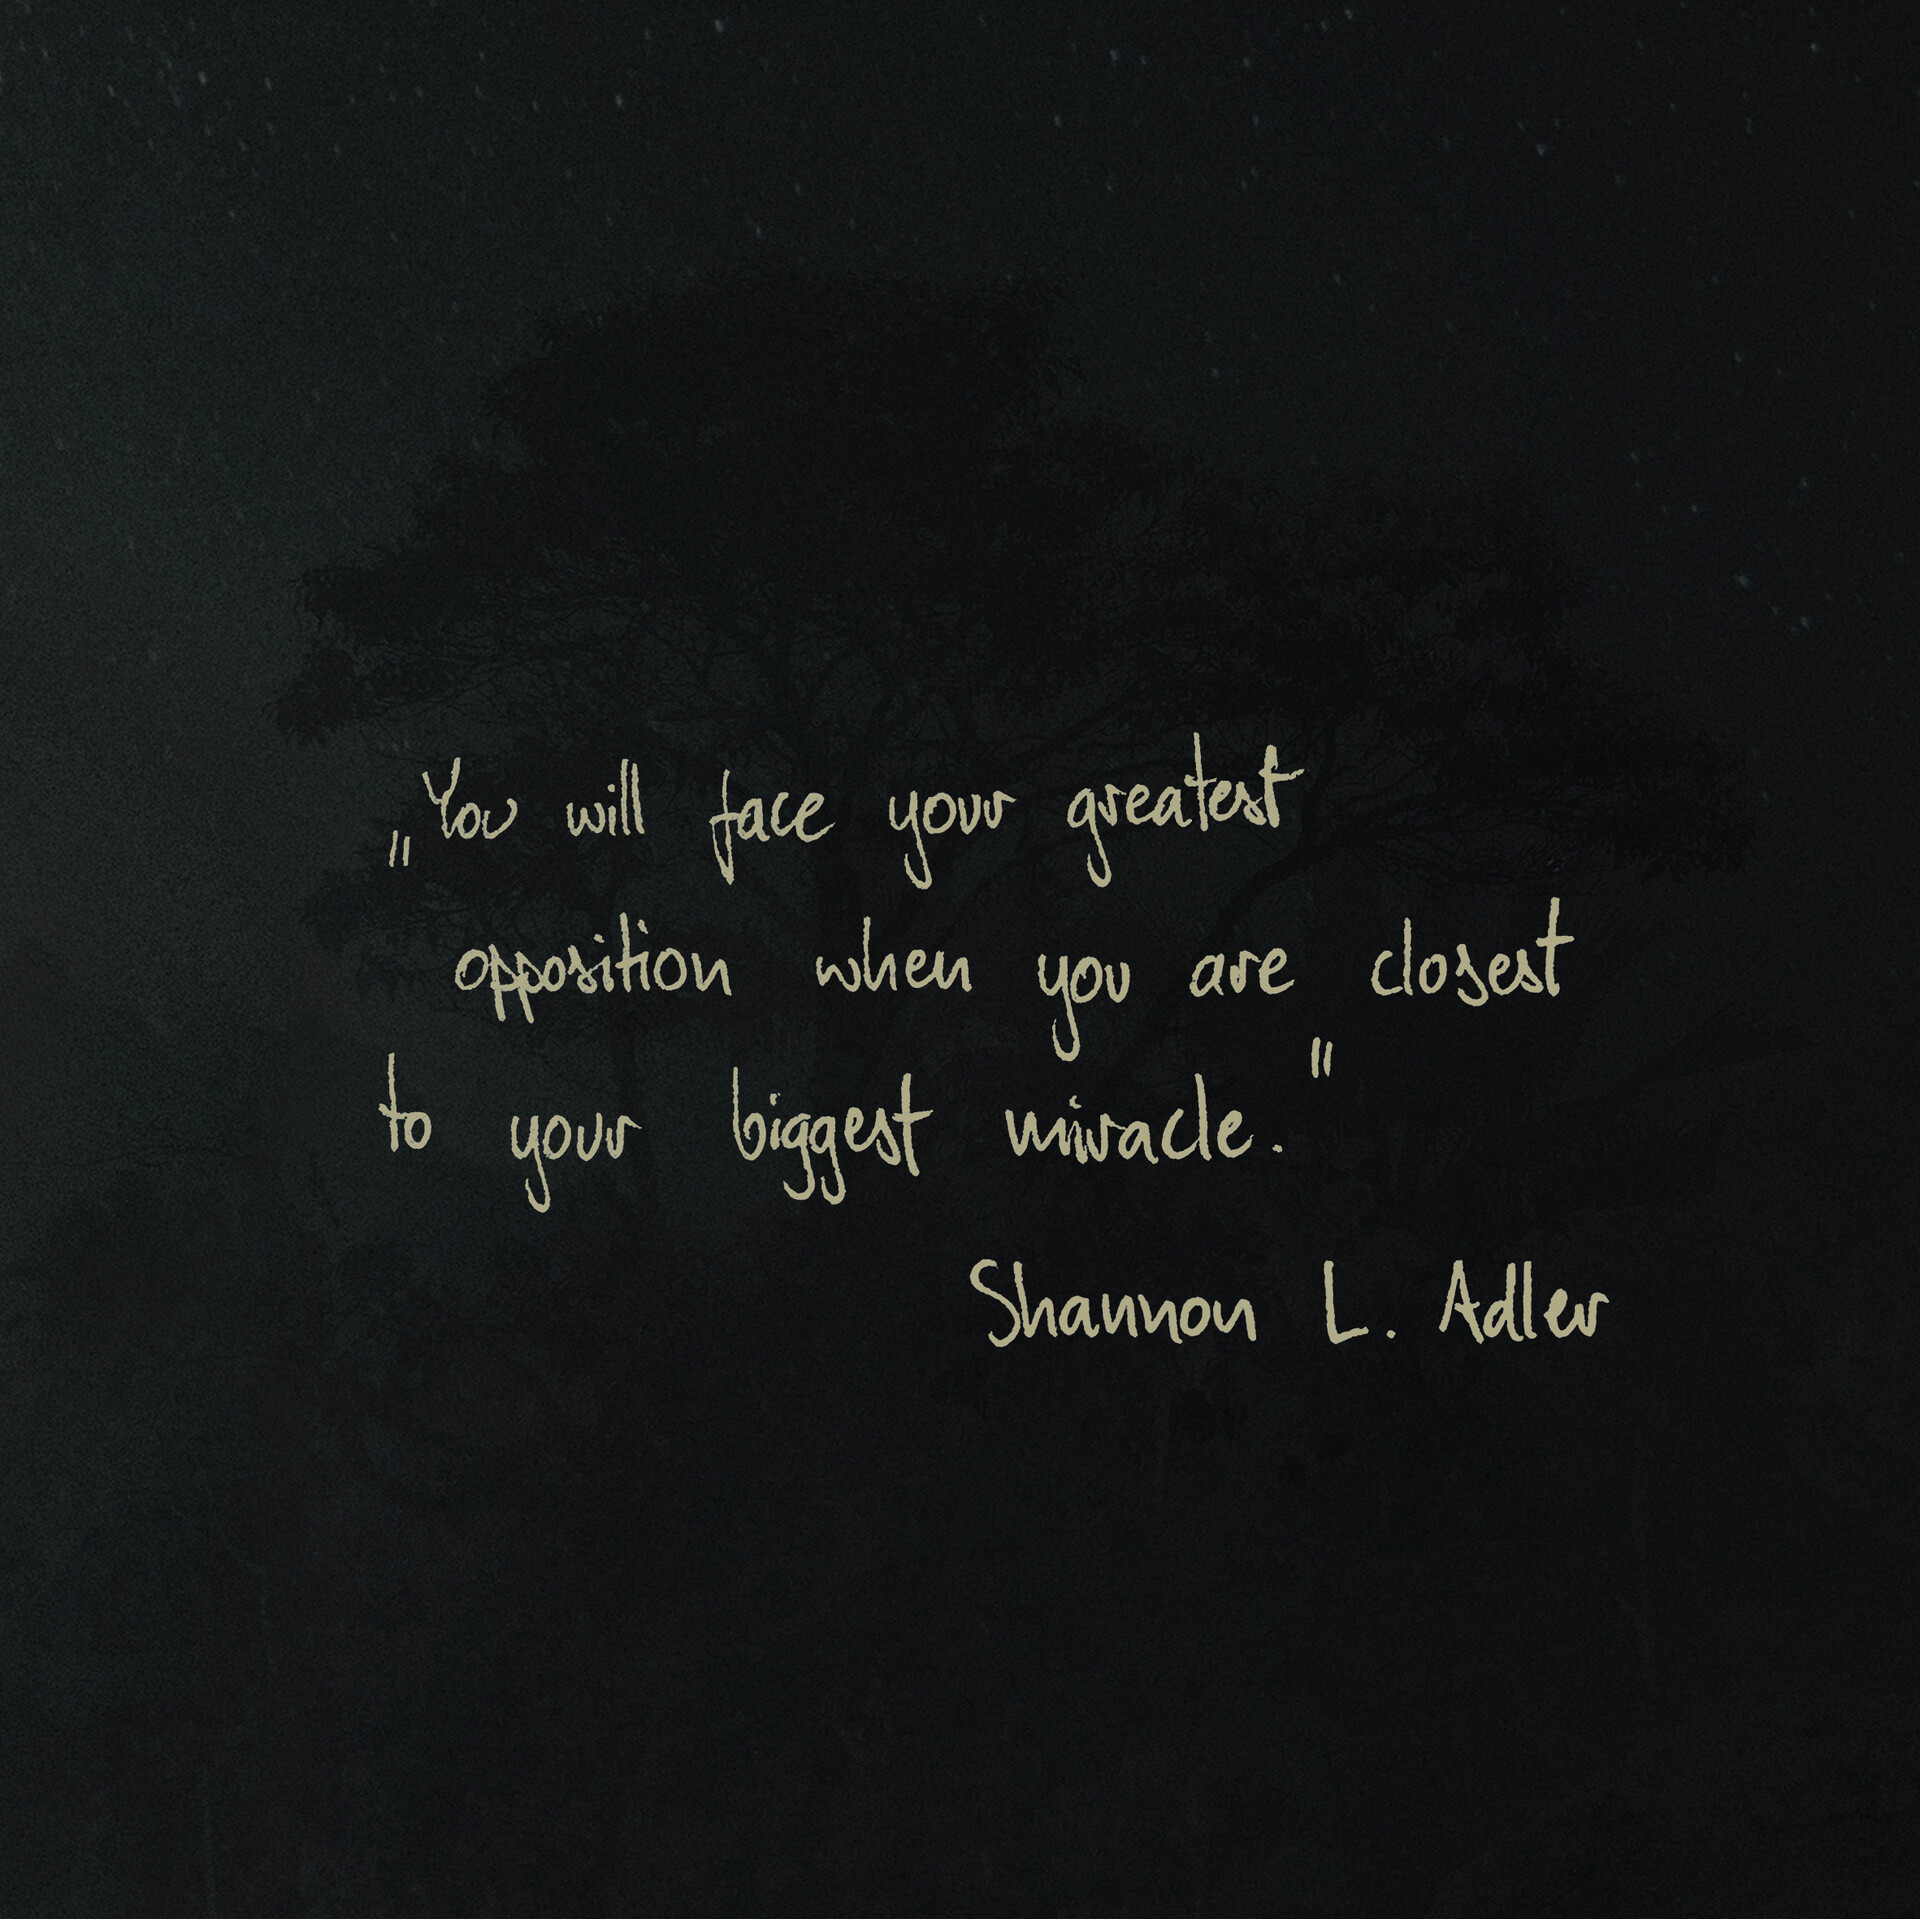 „You will face your greatest
opposition when you are closest
to your biggest miracle."
Shannon L. Adler